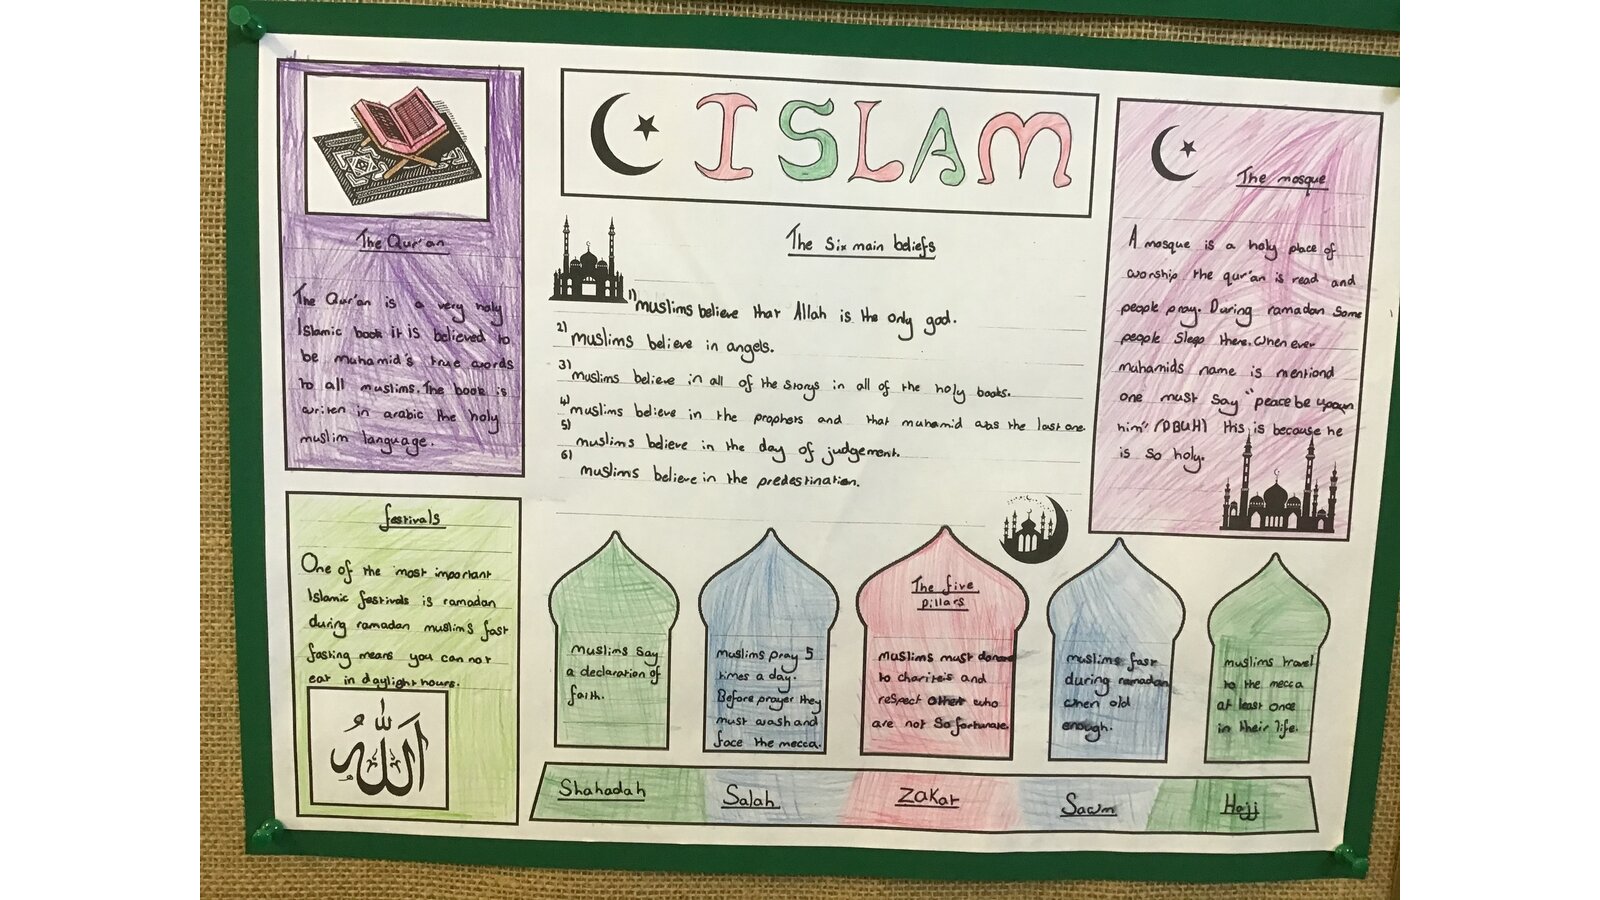 ISLAM
The Qur'an
The Qur'an is a very holy
Islamic book it is believed to
be muhamid's true words
to all muslims. The book is
writen in arabic the holy
muslim language.
festivals
One of the most important
Islamic festivals is ramadan
during ramadan muslims fast
fasting means you can not
eat in daylight hours.
الله
The six main beliefs
1) muslims believe that Allah is the only god.
2) muslims believe in angels.
3) muslims believe in all of the storys in all of the holy books.
4) muslims believe in the prophets and that muhamid was the last one.
5) muslims believe in the day of judgement.
6) muslims believe in the predestination.
The mosque
A mosque is a holy place of
worship the qur'an is read and
people pray. During ramadan some
people sleep there. When ever
muhamids name is mentiond
one must say "peace be upown
him" (PBUH) this is because he
is so holy.
The five
pillars
muslims say
a declaration of
faith.
muslims pray 5
times a day.
Before prayer they
must wash and
face the mecca.
muslims must donate
to chariteis and
respect who
are not so fortunate.
muslims fast
during ramadan
when old
enough.
muslims travel
to the mecca
at least once
in their life.
Shahadah
Salah
Zakat
Sawm
Hajj